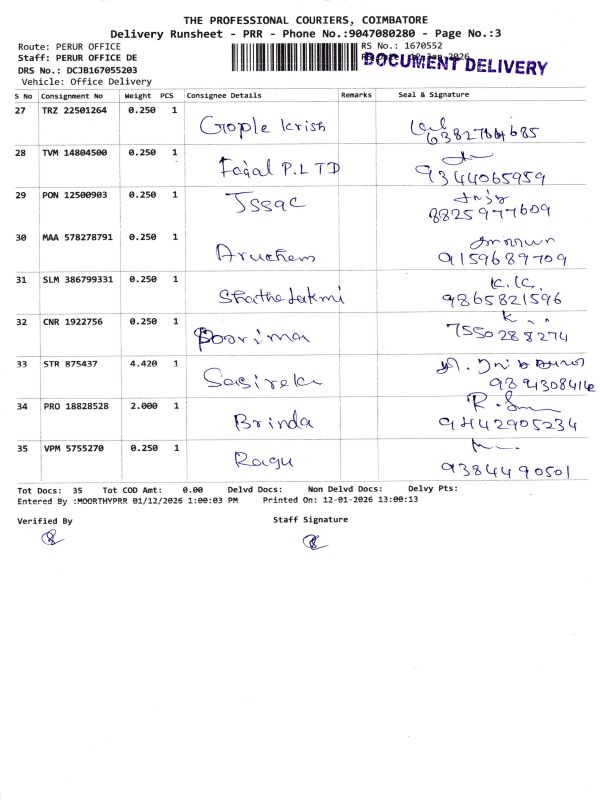 THE PROFESSIONAL COURIERS, COIMBATORE
Delivery Runsheet - PRR - Phone No.:9047080280 - Page No.:3
Route: PERUR OFFICE
RS No.: 1670552
Staff: PERUR OFFICE DE
DOCUMENT DELIVERY
DRS No.: DCJB167055203
Vehicle: Office Delivery
S No Consignment No Weight PCS Consignee Details Remarks Seal & Signature
27 TRZ 22501264 0.250 1 Gople krish
28 TVM 14804500 0.250 1 P.LTD 9344065959
29 PON 12500903 0.250 1 8825977609
30 MAA 578278791 0.250 1 Aruchem 9159689709
31 SLM 386799331 0.250 1 K.K. 9865821596
32 CNR 1922756 0.250 1 7550288274
33 STR 875437 4.420 1 Sasireka
34 PRO 18828528 2.000 1 Brinda 9442905234
35 VPM 5755270 0.250 1 Ragu 9384490501
Tot Docs: 35 Tot COD Amt: 0.00 Delvd Docs: Non Delvd Docs: Delvy Pts:
Entered By :MOORTHYPRR 01/12/2026 1:00:03 PM Printed On: 12-01-2026 13:00:13
Verified By Staff Signature